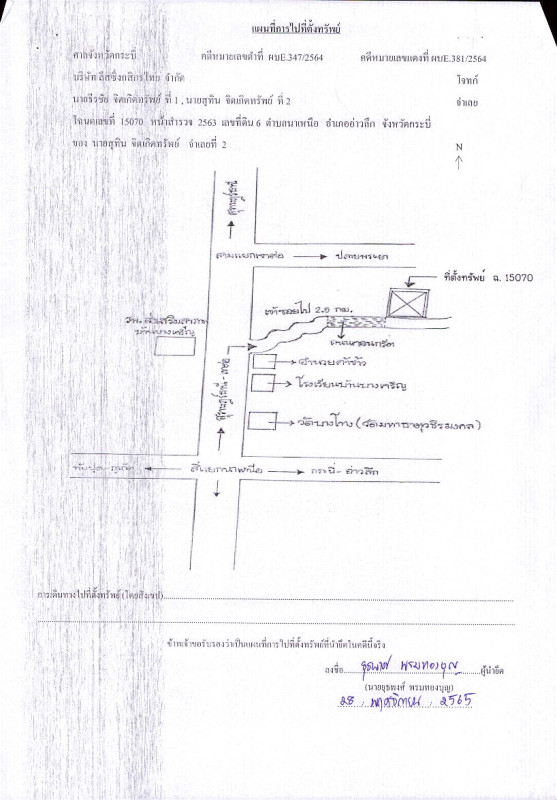 แผนที่การไปที่ตั้งทรัพย์
ศาลจังหวัดกระบี่ คดีหมายเลขดำที่ ผบE.347/2564 คดีหมายเลขแดงที่ ผบE.381/2564
บริษัท ลีสซิ่งกสิกรไทย จำกัด โจทก์
นายธีรชัย จิตเกิดทรัพย์ ที่ 1 , นายสุทิน จิตเกิดทรัพย์ ที่ 2 จำเลย
โฉนดเลขที่ 15070 หน้าสำรวจ 2563 เลขที่ดิน 6 ตำบลนาเหนือ อำเภออ่าวลึก จังหวัดกระบี่
ของ นายสุทิน จิตเกิดทรัพย์ จำเลยที่ 2
N
สุราษฎร์ธานี
สามแยกเขาต่อ ปลายพระยา
ที่ตั้งทรัพย์ ฉ. 15070
เข้าซอยไป 2.5 กม.
รพ.ส่งเสริมสุขภาพ
บ้านบางเหรียญ
ถนนคอนกรีต
สุราษฎร์ธานี - เขาต่อ
โรงเรียนบ้านบางเหรียญ
วัดบางโทง (วัดมหาธาตุวชิรมงคล)
ทับปุด - ภูเก็ต สี่แยกนาเหนือ กระบี่ - อ่าวลึก
การเดินทางไปที่ตั้งทรัพย์ (โดยสังเขป)
ข้าพเจ้าขอรับรองว่าเป็นแผนที่การไปที่ตั้งทรัพย์ที่นำยึดในคดีนี้จริง
ลงชื่อ ยุธพงศ์ พรมทองบุญ ผู้นำยึด
(นายยุธพงศ์ พรมทองบุญ)
28 , พฤศจิกายน , 2565